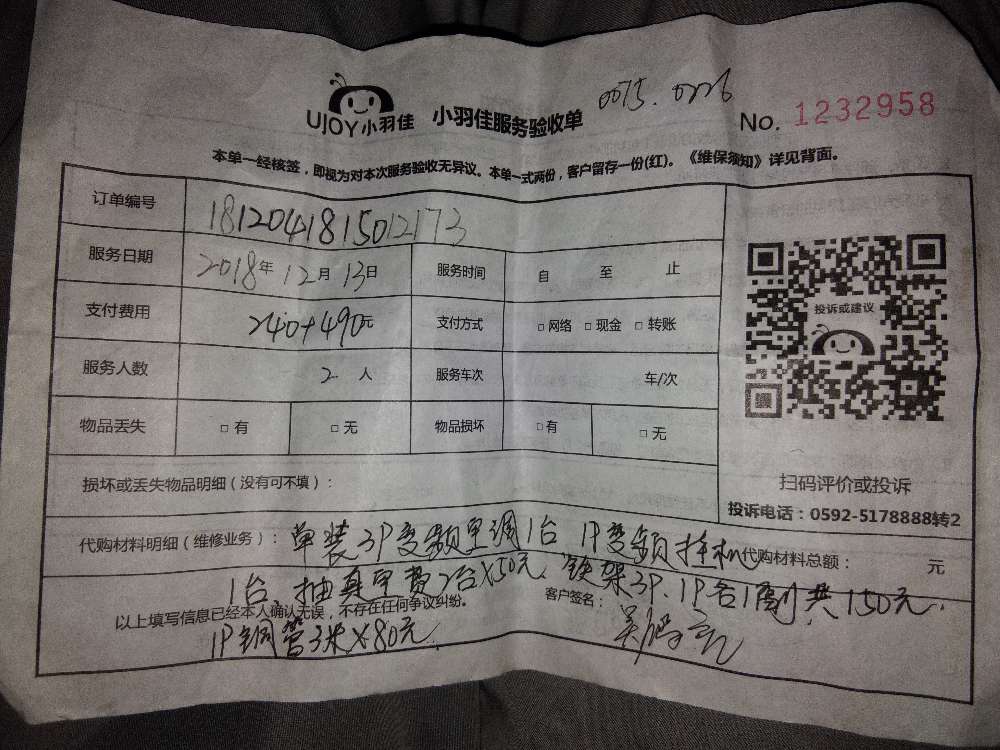 UJOY小羽佳 小羽佳服务验收单 0075.0226 No. 1232958
本单一经核签，即视为对本次服务验收无异议。本单一式两份，客户留存一份(红)。《维保须知》详见背面。
订单编号 1812041815012173
服务日期 2018年12月13日 服务时间 自 至 止
支付费用 240+490元 支付方式 □网络 □现金 □转账
服务人数 2人 服务车次 车/次
物品丢失 □有 □无 物品损坏 □有 □无
损坏或丢失物品明细（没有可不填）：
投诉或建议
扫码评价或投诉
投诉电话：0592-5178888转2
代购材料明细（维修业务）：单装3P变频空调1台 1P变频挂机 代购材料总额： 元
1台、抽真空费2台X50元、铁架3P、1P各1副共150元.
以上填写信息已经本人确认无误，不存在任何争议纠纷。 客户签名：
1P铜管3米X80元